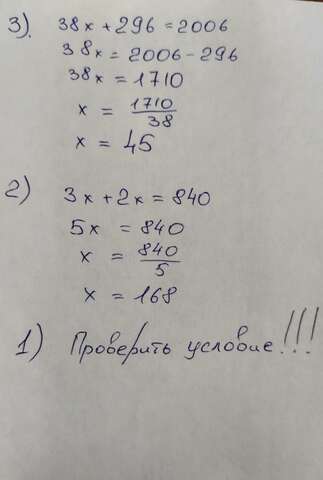 3). 38x + 296 = 2006
38x = 2006 - 296
38x = 1710
x = 1710/38
x = 45
2) 3x + 2x = 840
5x = 840
x = 840/5
x = 168
1) Проверить условие!!!